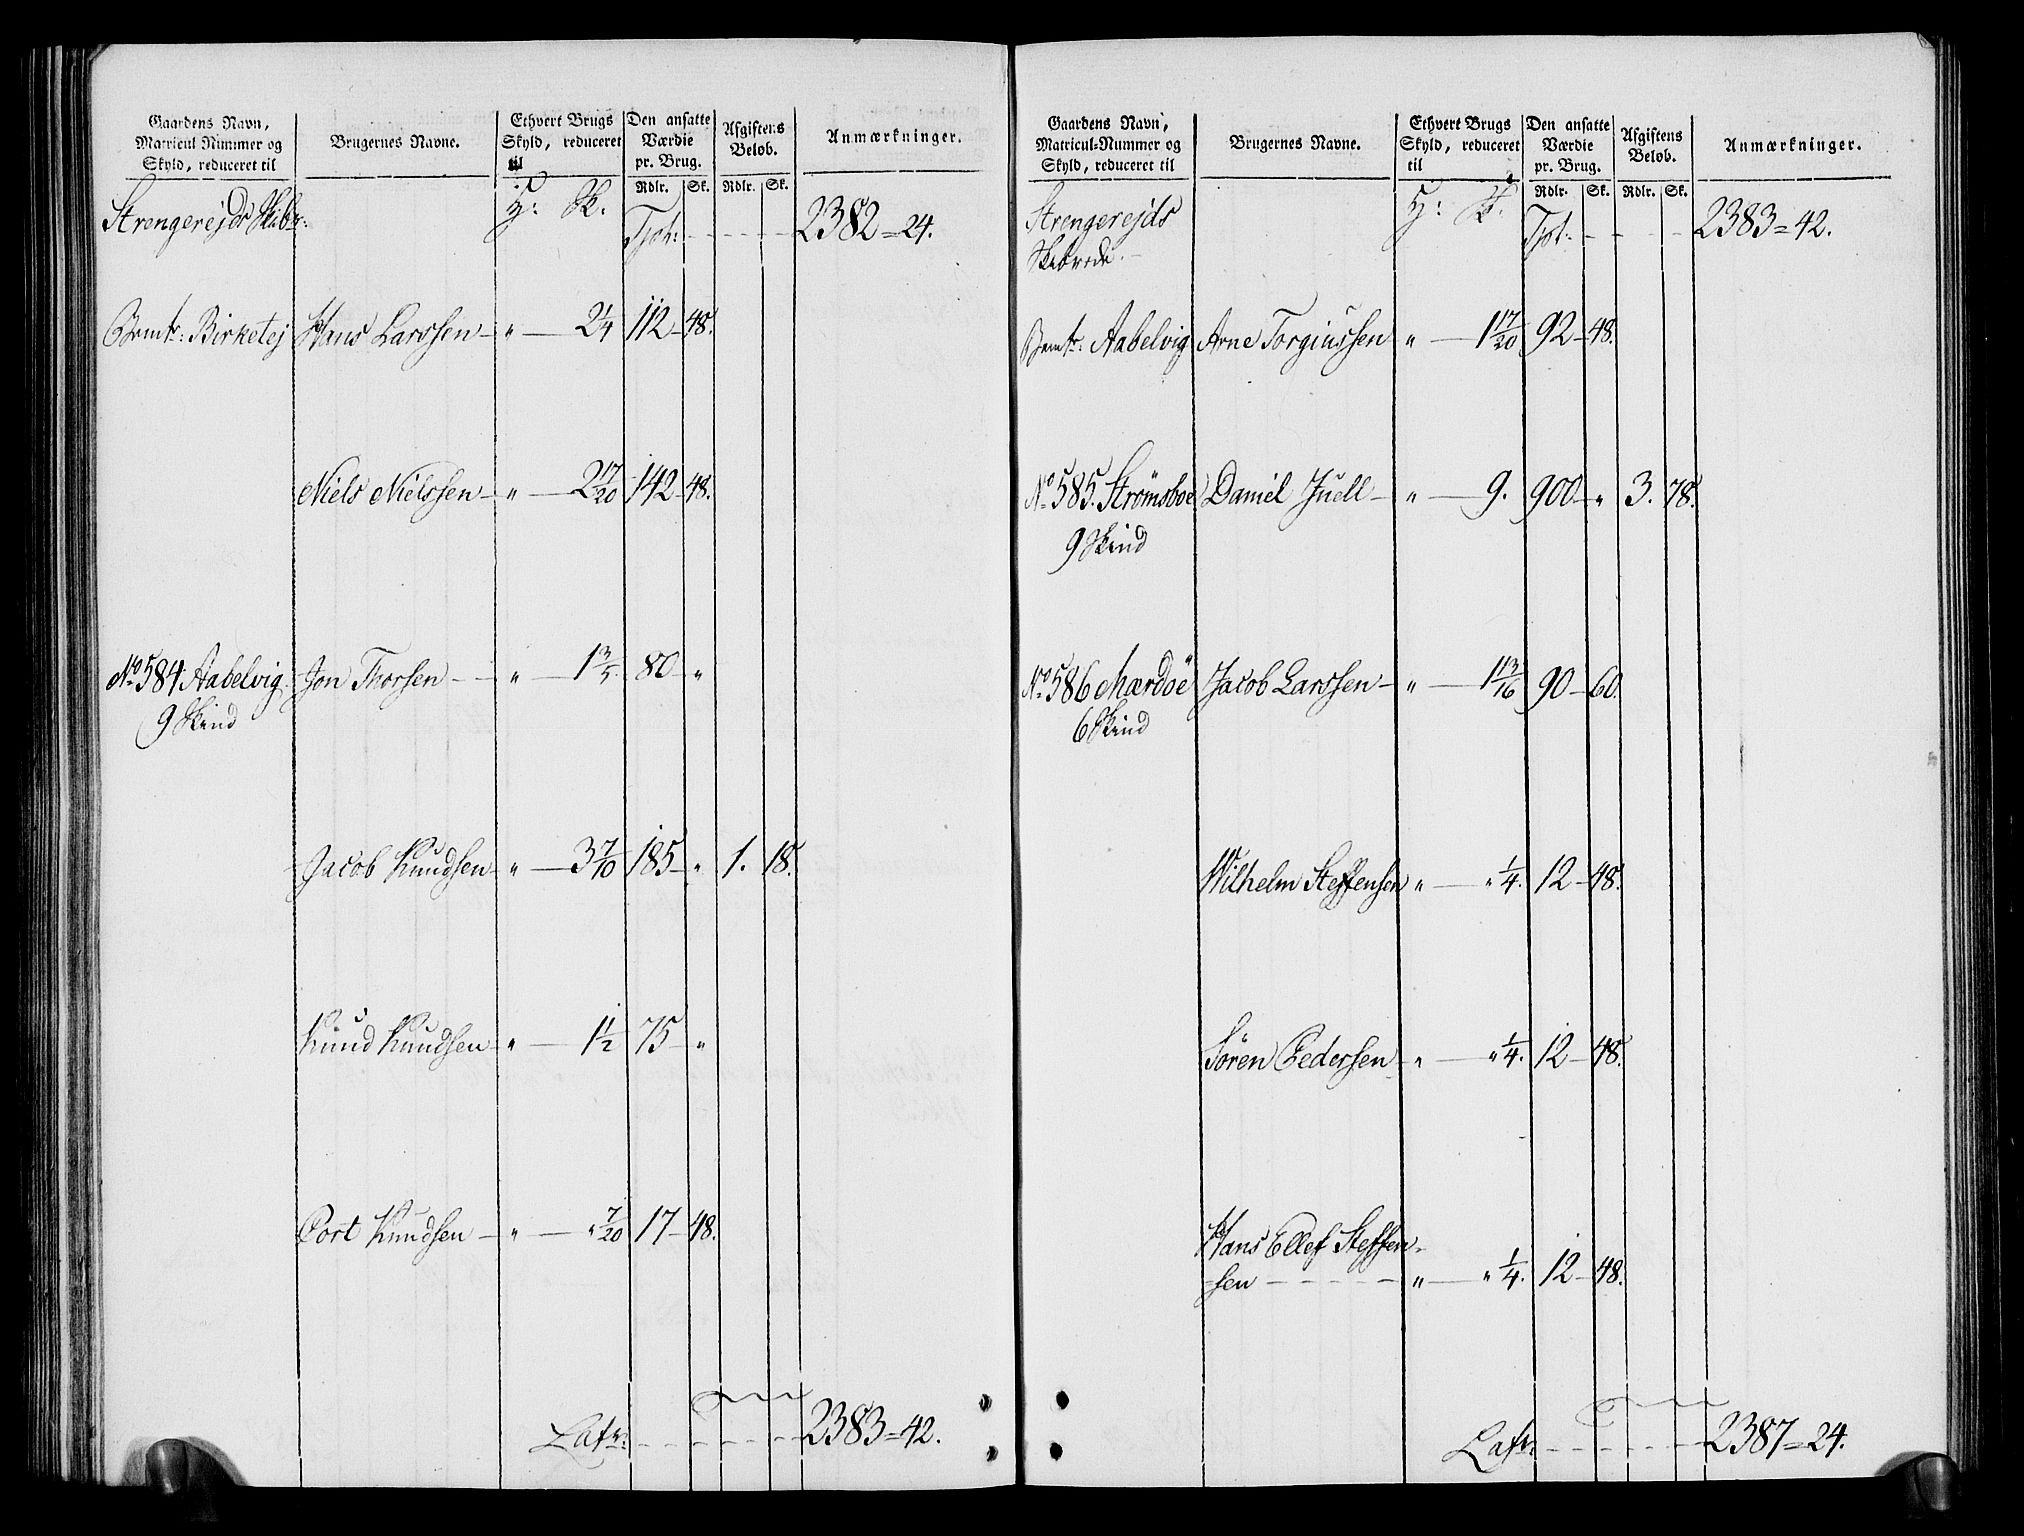 Gaardens Navn, Matricul Nummer og Skyld, reduceret til | Brugernes Navne. | Ethvert Brugs Skyld, reduceret til | Den ansatte Værdie pr. Brug. Rdlr. Sk. | Afgiftens Beløb. Rdlr. Sk. | Anmærkninger.
Strengerejds Skibr: H: Sk. Tpt: 2382 = 24.
Bemte: Birketej Hans Larssen – „ – 2 1/4 112 – 48.
Niels Nielssen – „ – 2 17/20 142 – 48.
No 584 Aabelvig Jon Thorsen – – „ – 1 3/5 80 – „
9 Skind
Jacob Knudsen – „ – 3 7/10 185 – „ 1. 18.
Knud Knudsen – „ – 1 1/2 75 – „
Cort Knudsen – „ – „ 7/20 17 – 48.
Latr: 2383 = 42.
Gaardens Navn, Matricul-Nummer og Skyld, reduceret til | Brugernes Navne. | Ethvert Brugs Skyld, reduceret til | Den ansatte Værdie pr. Brug. Rdlr. Sk. | Afgiftens Beløb. Rdlr. Sk. | Anmærkninger.
Strengerejds H: Sk. Tpt: 2383 = 42.
Skibrede.
Bemte: Aabelvig Arne Torgiussen „ – 1 17/20 92 – 48.
No 585. Strømsboe Daniel Juell – „ – 9. 900 – „ 3. 78.
9 Skind
No 586 Mærdöe Jacob Larssen – „ – 1 13/16 90 – 60.
6 Skind
Wilhelm Steffensen „ – „ 1/4. 12 – 48.
Sören Pedersen – „ – „ 1/4. 12 – 48.
Hans Ellef Steffen-
sen – – – – „ – „ 1/4. 12 – 48.
Latr: 2387 = 24.